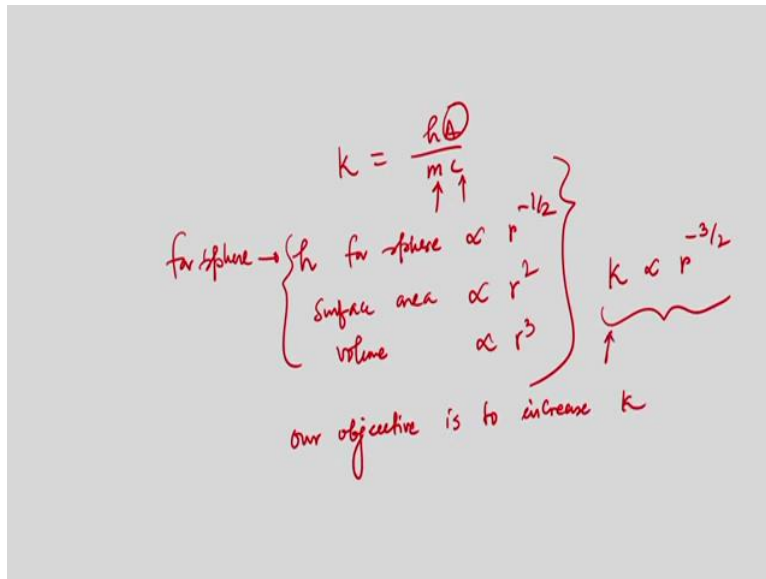 k = hA / mc
for sphere → { h for sphere ∝ r^{-1/2}
surface area ∝ r^2
volume ∝ r^3 }
k ∝ r^{-3/2}
our objective is to increase k